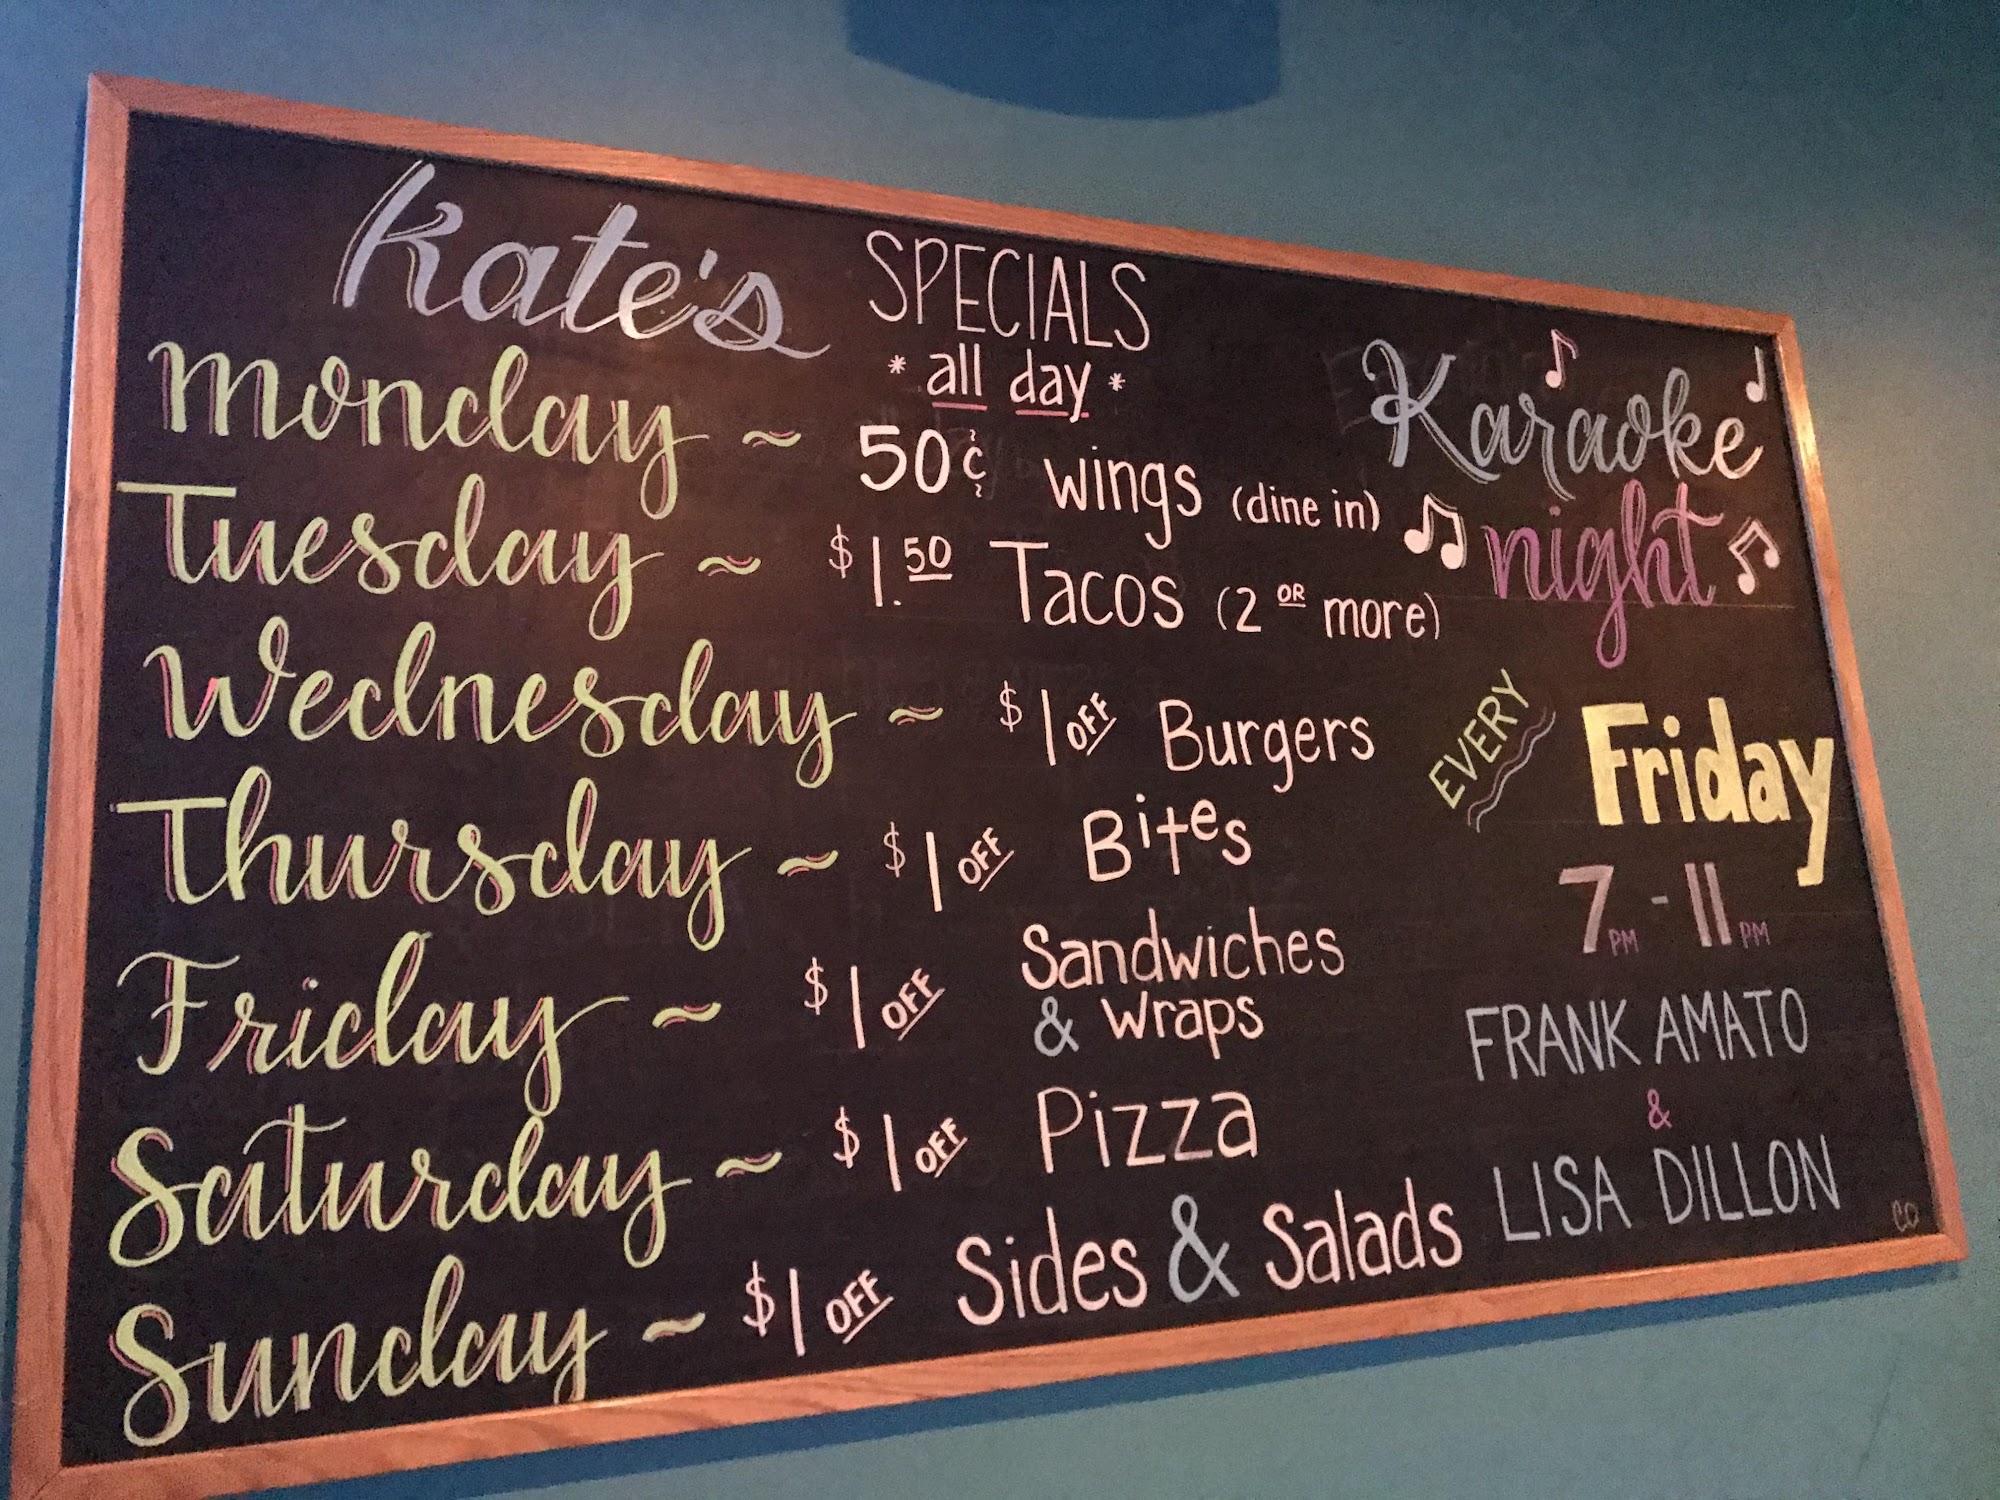 Kate's SPECIALS
* all day *
Monday ~ 50¢ wings (dine in)
Tuesday ~ $1.50 Tacos (2 OR more)
Wednesday ~ $1 OFF Burgers
Thursday ~ $1 OFF Bites
Friday ~ $1 OFF Sandwiches
& Wraps
Saturday ~ $1 OFF Pizza
Sunday ~ $1 OFF Sides & Salads
Karaoke
night
EVERY Friday
7PM - 11PM
FRANK AMATO
&
LISA DILLON
CO